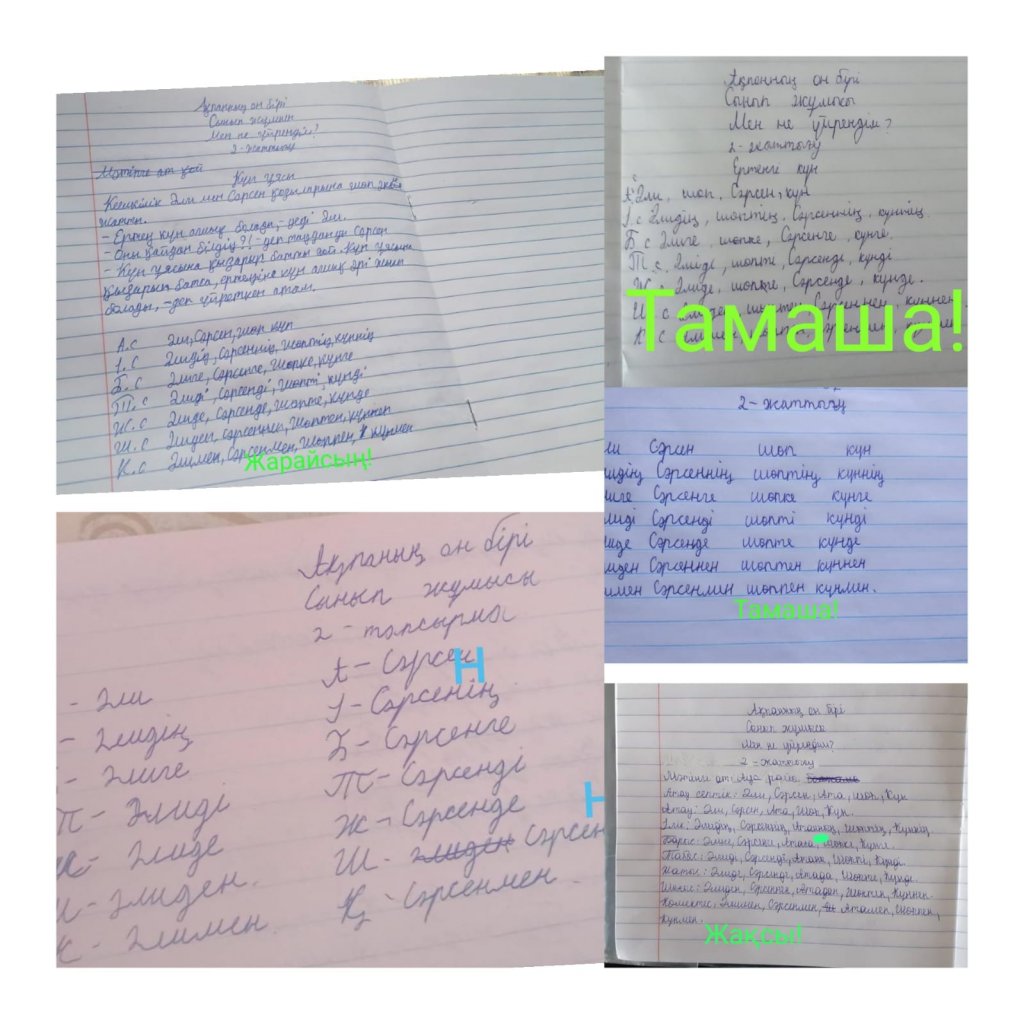 Ақпанның он бірі
Сынып жұмысы
Мен не үйрендім?
2-жаттығу
Мәтінге ат қой
Күн ұясы
Кешкілік Әли мен Сәрсен қозыларына шөп
жатты.
- Ертең күн ашық болады,- деді Әли.
- Оны қайдан білдің?!- деп таңданды Сәрсен
- Күн ұясына қызарып батты ғой. Күн ұясына
қызарып батса, ертеңіне күн ашық әрі жылы
болады, -деп үйреткен атам.
А.с Әли, Сәрсен, шөп күн
І.с Әлидің, Сәрсеннің, шөптің, күннің
Б.с Әлиге, Сәрсенге, шөпке, күнге
Т.с Әлиді, Сәрсенді, шөпті, күнді
Ж.с Әлиде, Сәрсенде, шөпте, күнде
Ш.с Әлиден, Сәрсеннен, шөптен, күннен
К.с Әлимен, Сәрсенмен, шөппен, күнмен
Жарайсың!
Ақпанның он бірі
Сынып жұмысы
Мен не үйрендім?
2-жаттығу
Ертеңгі күн
А.с Әли, шөп, Сәрсен, күн
І.с Әлидің, шөптің, Сәрсеннің, күннің.
Б.с Әлиге, шөпке, Сәрсенге, күнге.
Т.с. Әлиді, шөпті, Сәрсенді, күнді
Ж.с. Әлиде, шөпте, Сәрсенде, күнде.
Ш.с Әлиден, шөптен, Сәрсеннен, күннен.
К.с
Тамаша!
2-жаттығу
ли Сәрсен шөп күн
лидің Сәрсеннің шөптің күннің
лиге Сәрсенге шөпке күнге
лиді Сәрсенді шөпті күнді
лиде Сәрсенде шөпте күнде
лиден Сәрсеннен шөптен күннен
лимен Сәрсенмин шөппен күнмен.
Тамаша!
Ақпаның он бірі
Сынып жұмысы
2-тапсырма
- Әли
- Әлидің
- Әлиге
Т- Әлиді
Ж- Әлиде
Ш- Әлиден.
К - Әлимен.
А- Сәрсен
Н
І- Сәрсенің
Б- Сәрсенге
Т- Сәрсенді
Ж- Сәрсенде
Н
Ш- Әлиден Сәрсен
К- Сәрсенмен.
Ақпанның он бірі
Сынып жұмысы
Мен не үйрендім?
2-жаттығу
Мәтінге ат: Ауа райы.
Атау септік: Әли, Сәрсен, Ата, шөп, Күн
Атау: Әли, Сәрсен, Ата, Шөп, Күн.
Ілік: Әлидің, Сәрсеннің, Атаның, Шөптің, Күннің.
Барыс: Әлиге, Сәрсенге, Атаға, Шөпке, Күнге.
Табыс: Әлиді, Сәрсенді, Атаны, Шөпті, Күнді.
Жатыс: Әлиде, Сәрсенде, Атада, Шөпте, Күнде.
Шығыс: Әлиден, Сәрсеннен, Атадан, Шөптен, Күннен.
Көмектес: Әлимен, Сәрсенмен, Атамен, Шөппен,
Күнмен.
Жақсы!